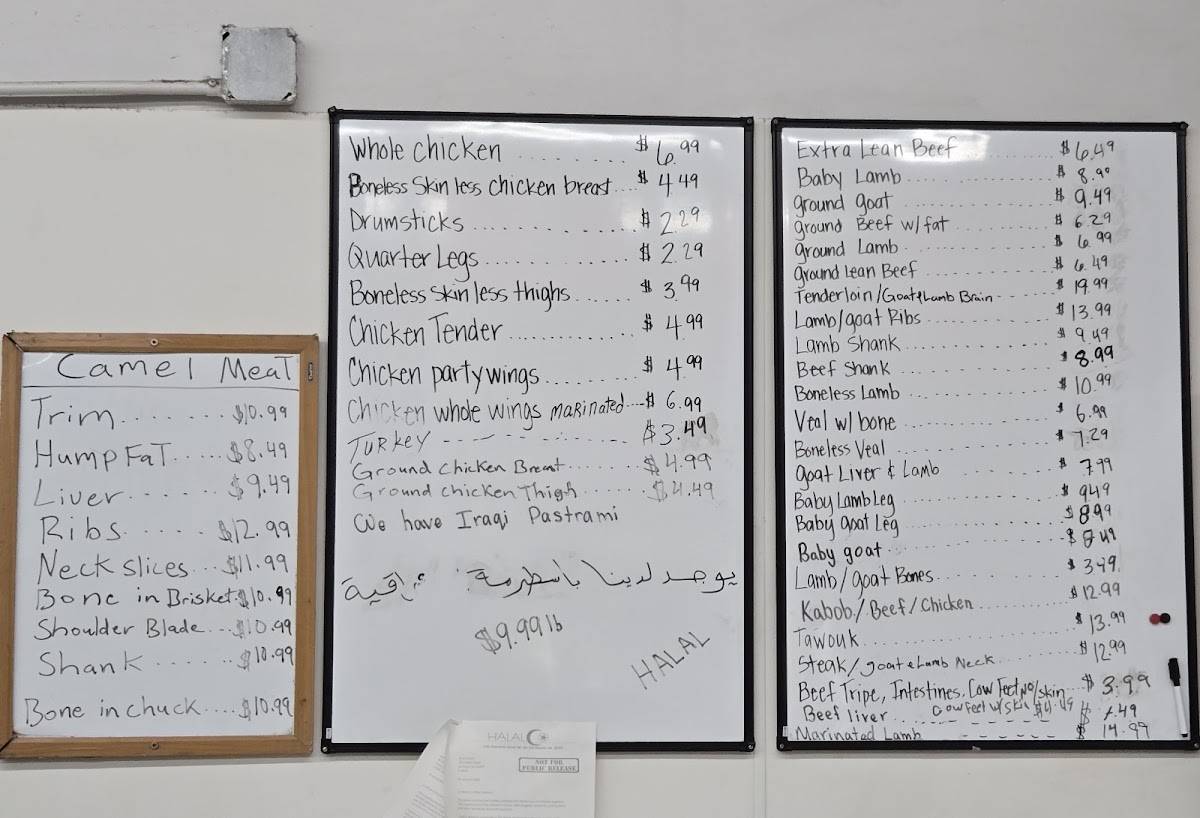 Camel Meat
Trim........$10.99
Hump Fat.....$8.49
Liver......$9.49
Ribs......$12.99
Neck slices...$11.99
Bone in Brisket.$10.99
Shoulder Blade...$10.99
Shank......$10.99
Bone in chuck....$10.99
Whole chicken........$6.99
Boneless Skin less chicken breast....$4.49
Drumsticks............$2.29
Quarter Legs............$2.29
Boneless Skin less thighs......$3.99
Chicken Tender............$4.99
Chicken party wings........$4.99
Chicken whole wings marinated...$6.99
Turkey.........$3.49
Ground Chicken Breast.......$4.99
Ground chicken Thigh......$4.49
We have Iraqi Pastrami
يوجد لدينا باسطرمة عراقية
$9.99 lb
HALAL
HALAL
NOT FOR
PUBLIC RELEASE
Extra Lean Beef..........$6.49
Baby Lamb..........$8.99
ground goat..........$9.49
ground Beef w/fat..........$6.29
ground Lamb..........$6.99
ground Lean Beef..........$6.49
Tenderloin/Goat&Lamb Brain....$19.99
Lamb/goat Ribs..........$13.99
Lamb Shank..........$9.49
Beef Shank..........$8.99
Boneless Lamb..........$10.99
Veal w/bone..........$6.99
Boneless Veal..........$7.29
goat Liver & Lamb..........$7.99
Baby Lamb Leg..........$9.49
Baby goat Leg..........$8.99
Baby goat..........$8.49
Lamb/goat Bones..........$3.49
Kabob/Beef/Chicken..........$12.99
Tawouk..........$13.99
Steak/goat & Lamb Neck......$12.99
Beef Tripe, Intestines, Cow Feet No/skin...$3.99
Cow Feet w/skin $4.49
Beef liver...$.49
Marinated Lamb......$14.99